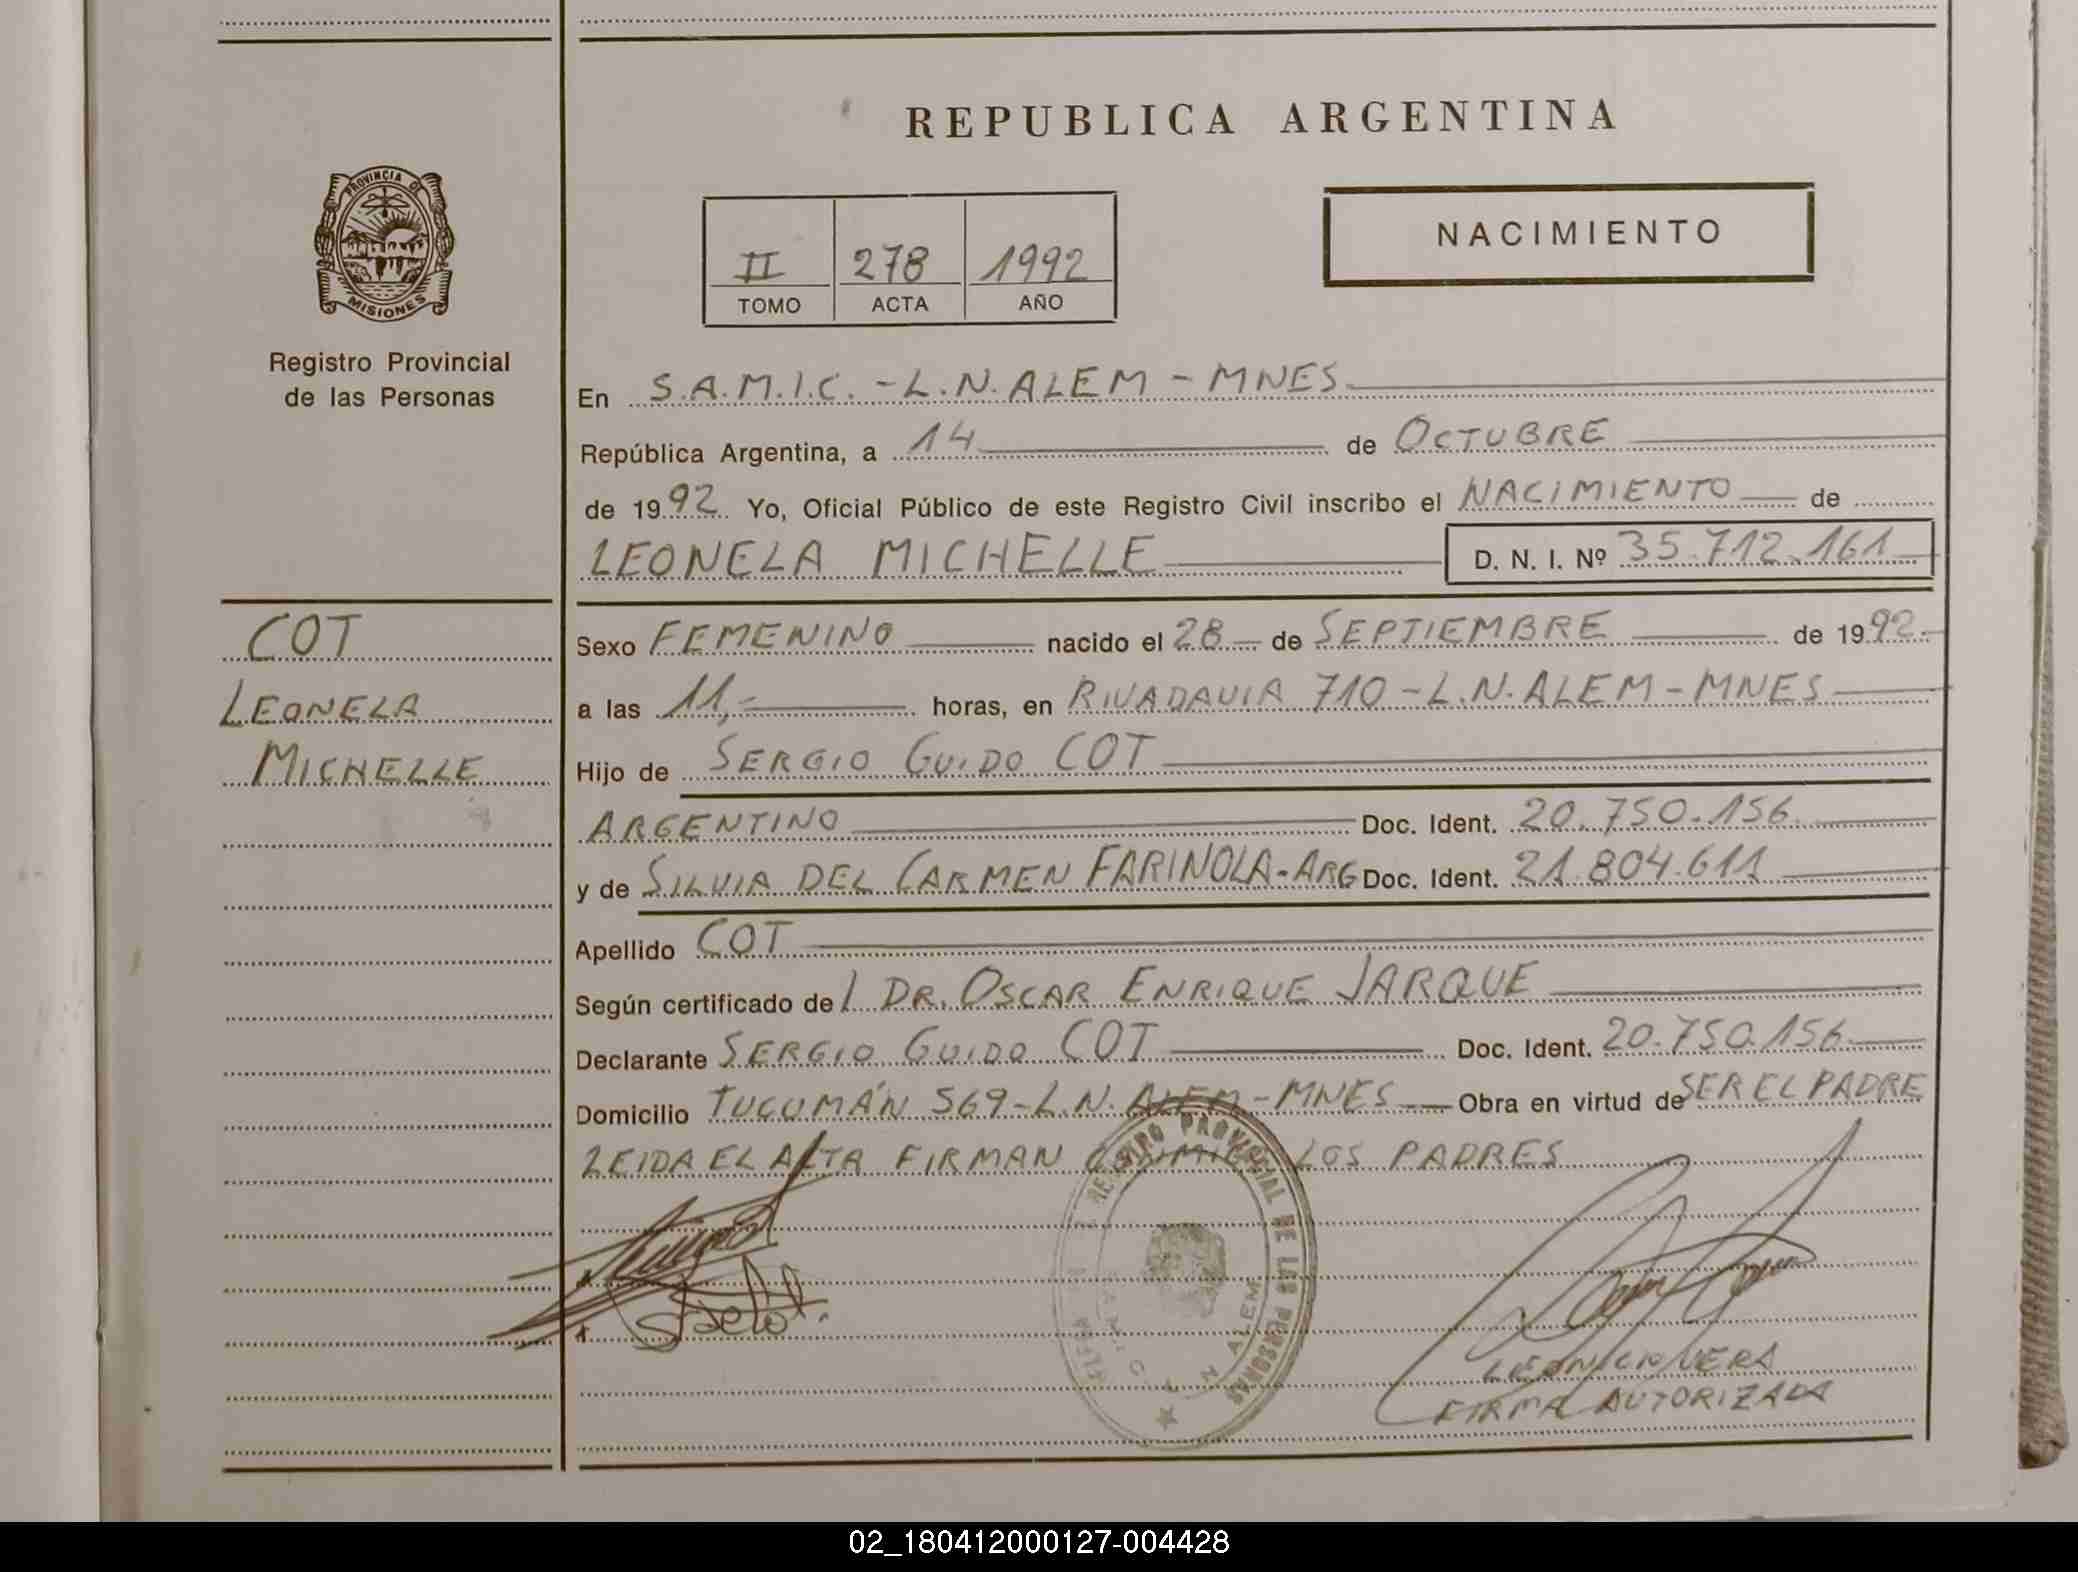 REPUBLICA ARGENTINA
PROVINCIA DE
MISIONES
Registro Provincial
de las Personas
II 278 1992
TOMO ACTA AÑO
NACIMIENTO
En S.A.M.I.C. - L.N. ALEM - MNES
República Argentina, a 14 de OCTUBRE
de 1992 Yo, Oficial Público de este Registro Civil inscribo el NACIMIENTO de
LEONELA MICHELLE D. N. I. Nº 35.712.161
COT
LEONELA
MICHELLE
Sexo FEMENINO nacido el 28 de SEPTIEMBRE de 1992.
a las 11,- horas, en RIVADAVIA 710 - L.N. ALEM - MNES
Hijo de SERGIO GUIDO COT
ARGENTINO Doc. Ident. 20.750.156
y de SILVIA DEL CARMEN FARINOLA - ARG Doc. Ident. 21.804.611
Apellido COT
Según certificado del DR. OSCAR ENRIQUE JARQUE
Declarante SERGIO GUIDO COT Doc. Ident. 20.750.156
Domicilio TUCUMÁN 569 - L.N. ALEM - MNES Obra en virtud de SER EL PADRE
LEIDA EL ACTA FIRMAN CONMIGO LOS PADRES
REGISTRO PROVINCIAL DE LAS PERSONAS
N ALEM
LEONICIO VERA
FIRMA AUTORIZADA
02_180412000127-004428